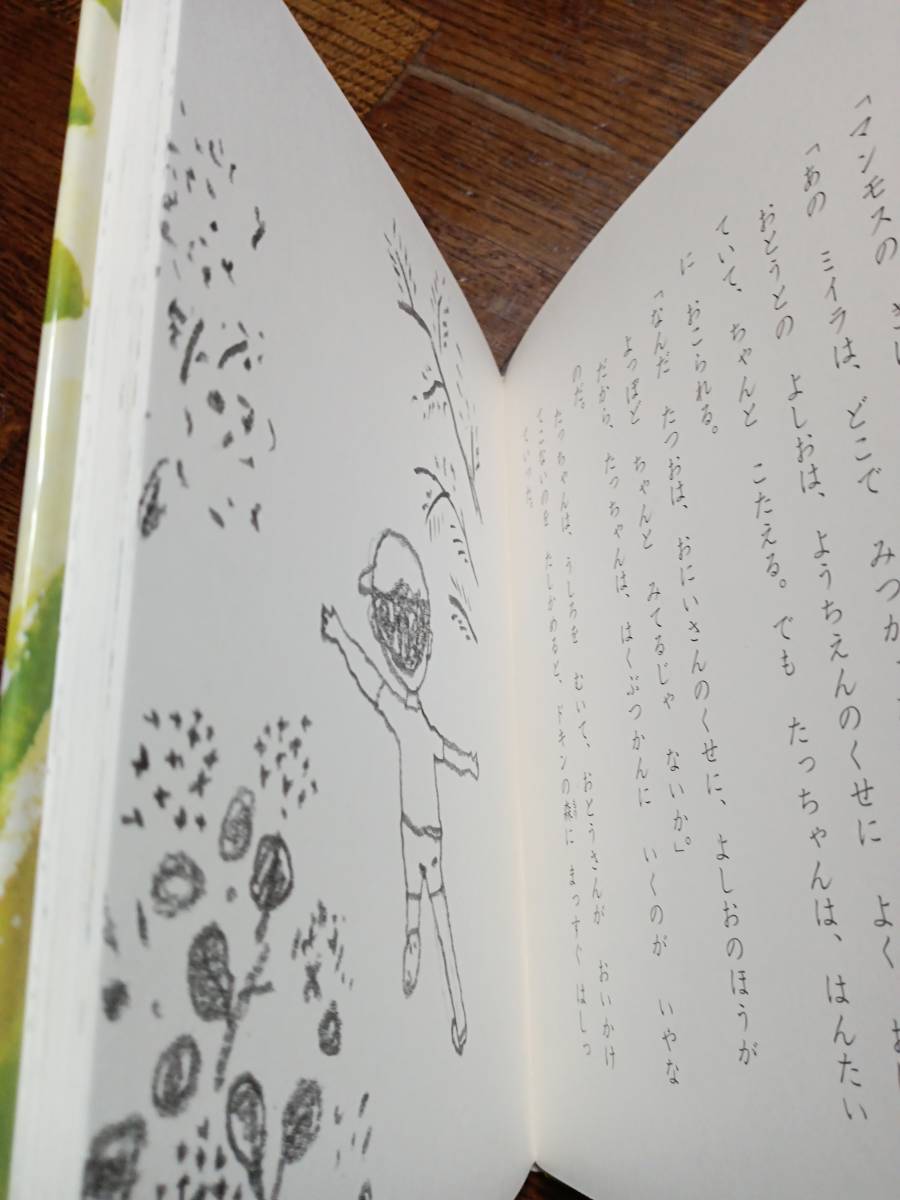 「マンモスの
「あの ミイラは、どこで みつか
おとうとの よしおは、ようちえんのくせに よく
ていて、ちゃんと こたえる。でも たっちゃんは、はんたい
に おこられる。
「なんだ たつおは、おにいさんのくせに、よしおのほうが
よっぽど ちゃんと みてるじゃ ないか。」
だから、たっちゃんは、はくぶつかんに いくのが いやな
のだ。
たっちゃんは、うしろを むいて、おとうさんが おいかけ
てこないのを たしかめると、ドキンの森に まっすぐ はしっ
ていった。